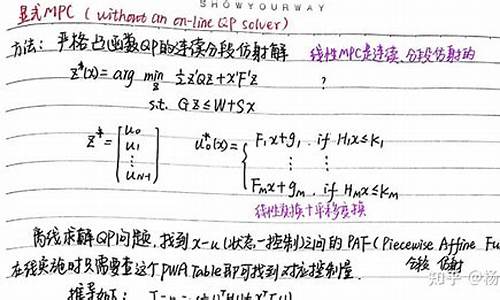 SHOW YOUR WAY
显式MPC (without an on-line QP solver)
方法: 严格凸函数QP的连续分段仿射解 线性MPC是连续、分段仿射的
z*(x) = arg min_z ½z'Qz + x'F'z ?
s.t. Gz ≤ W + Sx
z* = [u0 u1 ⋮ uN-1] u0*(x) = { F1x + g1, if H1x ≤ K1
⋮ ⋮
FMx + gM, if HMx ≤ KM
线性变换+平移变换
离线求解QP问题, 找到x-u(状态-控制)之间的PAF (Piecewise Affine Fu
分段 仿射
在线实施时只需要查这个PWA Table即可找到对应控制量.
推导如下:
知乎 @杨